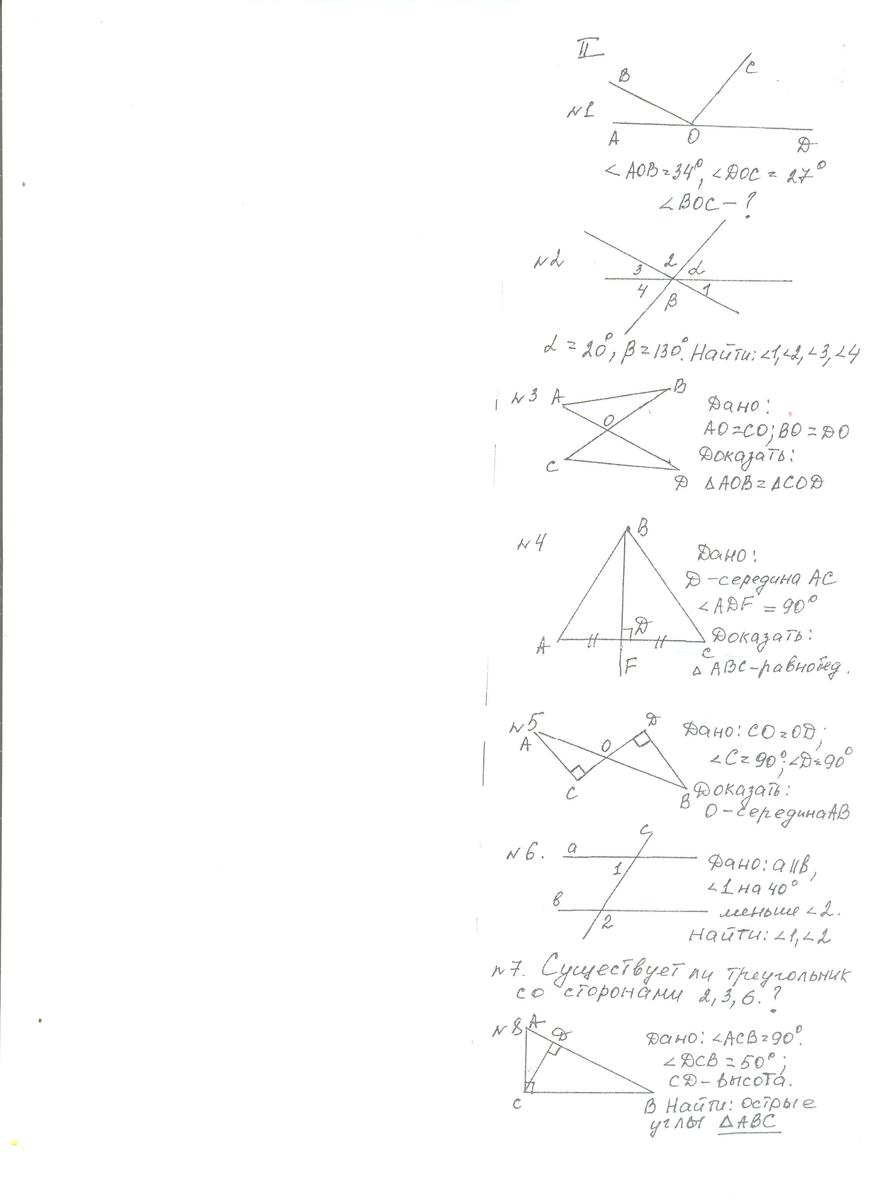 II
B C
№1
A O D
∠AOB=34°, ∠DOC = 27°
∠BOC - ?
№2 3 2 α
4 β 1
α = 20°, β = 130°. Найти: ∠1, ∠2, ∠3, ∠4
№3 A B O C D
Дано:
AO=CO; BO=DO
Доказать:
△AOB=△COD
№4 B A D C F
Дано:
D-середина AC
∠ADF = 90°
Доказать:
△ABC-равнобед.
№5 A D O C B
Дано: CO=OD;
∠C=90°; ∠D=90°
Доказать:
O-середина AB
№6. a c 1 b 2
Дано: a||b,
∠1 на 40°
меньше ∠2.
Найти: ∠1, ∠2
№7. Существует ли треугольник
со сторонами 2, 3, 6.?
№8 A D C B
Дано: ∠ACB=90°.
∠DCB=50°;
CD-высота.
Найти: острые
углы △ABC